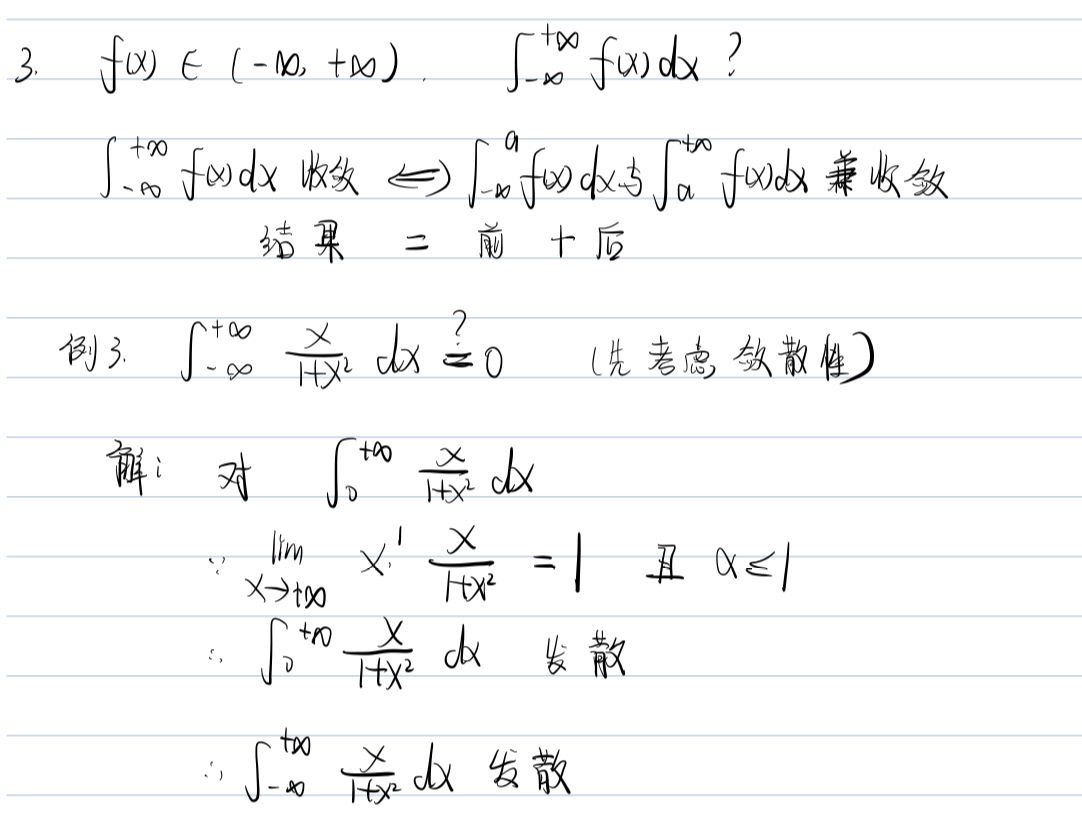 3. f(x) ∈ (-∞, +∞). ∫_{-∞}^{+∞} f(x)dx ?
∫_{-∞}^{+∞} f(x)dx 收敛 ⇔ ∫_{-∞}^{a} f(x)dx与∫_{a}^{+∞} f(x)dx 兼收敛
结果 = 前 + 后
例3. ∫_{-∞}^{+∞} \frac{x}{1+x²} dx \overset{?}{=} 0 (先考虑敛散性)
解: 对 ∫_{0}^{+∞} \frac{x}{1+x²} dx
∵ \lim_{x→+∞} x^{1}·\frac{x}{1+x²} = 1 且 α≤1
∴ ∫_{0}^{+∞} \frac{x}{1+x²} dx 发散
∴ ∫_{-∞}^{+∞} \frac{x}{1+x²} dx 发散